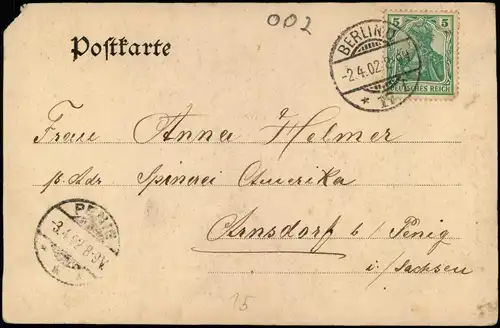 002
Postkarte
BERLIN O
-2.4.02
* 17
5 5
DEUTSCHES REICH
Frau Anna Helmer
p. Adr Spinerei Amerika
Arnsdorf b/ Penig
i/Sachsen
PENIG
3.4.02 8-9V.
* *
15